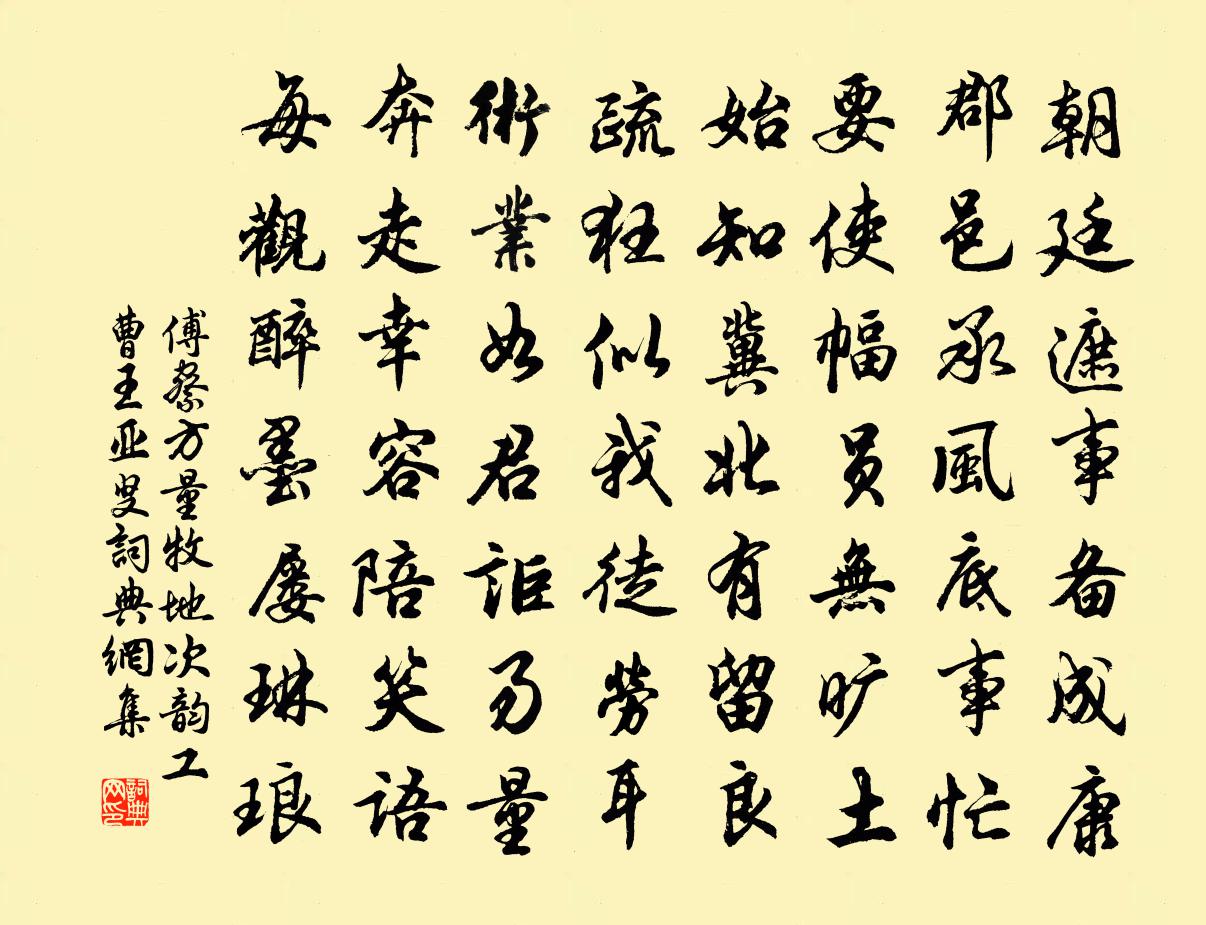 朝廷遮事备成康
郡邑承風底事忙
要使幅员無旷土
始知冀北有留良
疏狂似我徒勞耳
術業如君詎易量
奔走幸容陪笑語
每觀醉墨屡琳琅
傅察方量牧地次韵工
曹王亚叟詞典網集
詞典
网印